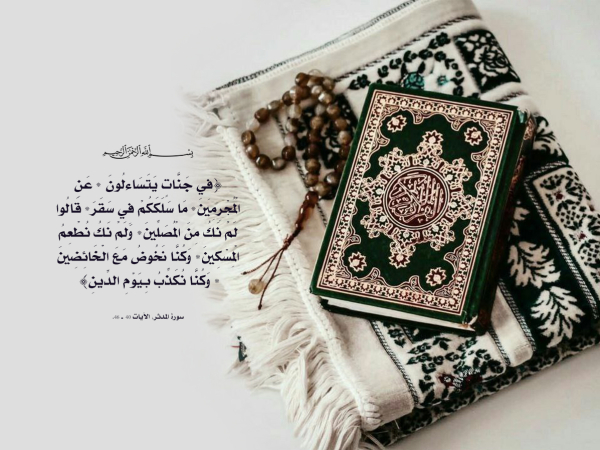 بسم الله الرحمن الرحيم
﴿في جنَّات يَتَسَاءلُونَ * عَن
المجرمين* ما سَلَكَكُم في سقَرَ* قَالُوا
لم نَكُ منَ المصَلين* وَلَم نَكُ نُطعمُ
المسكين* وَكُنَّا نَخُوضُ مَعَ الخَائضِين
* وكُنَّا نُكَذِّبُ بِيَوْم الدِّينِ﴾
سورة المدثر، الآيات